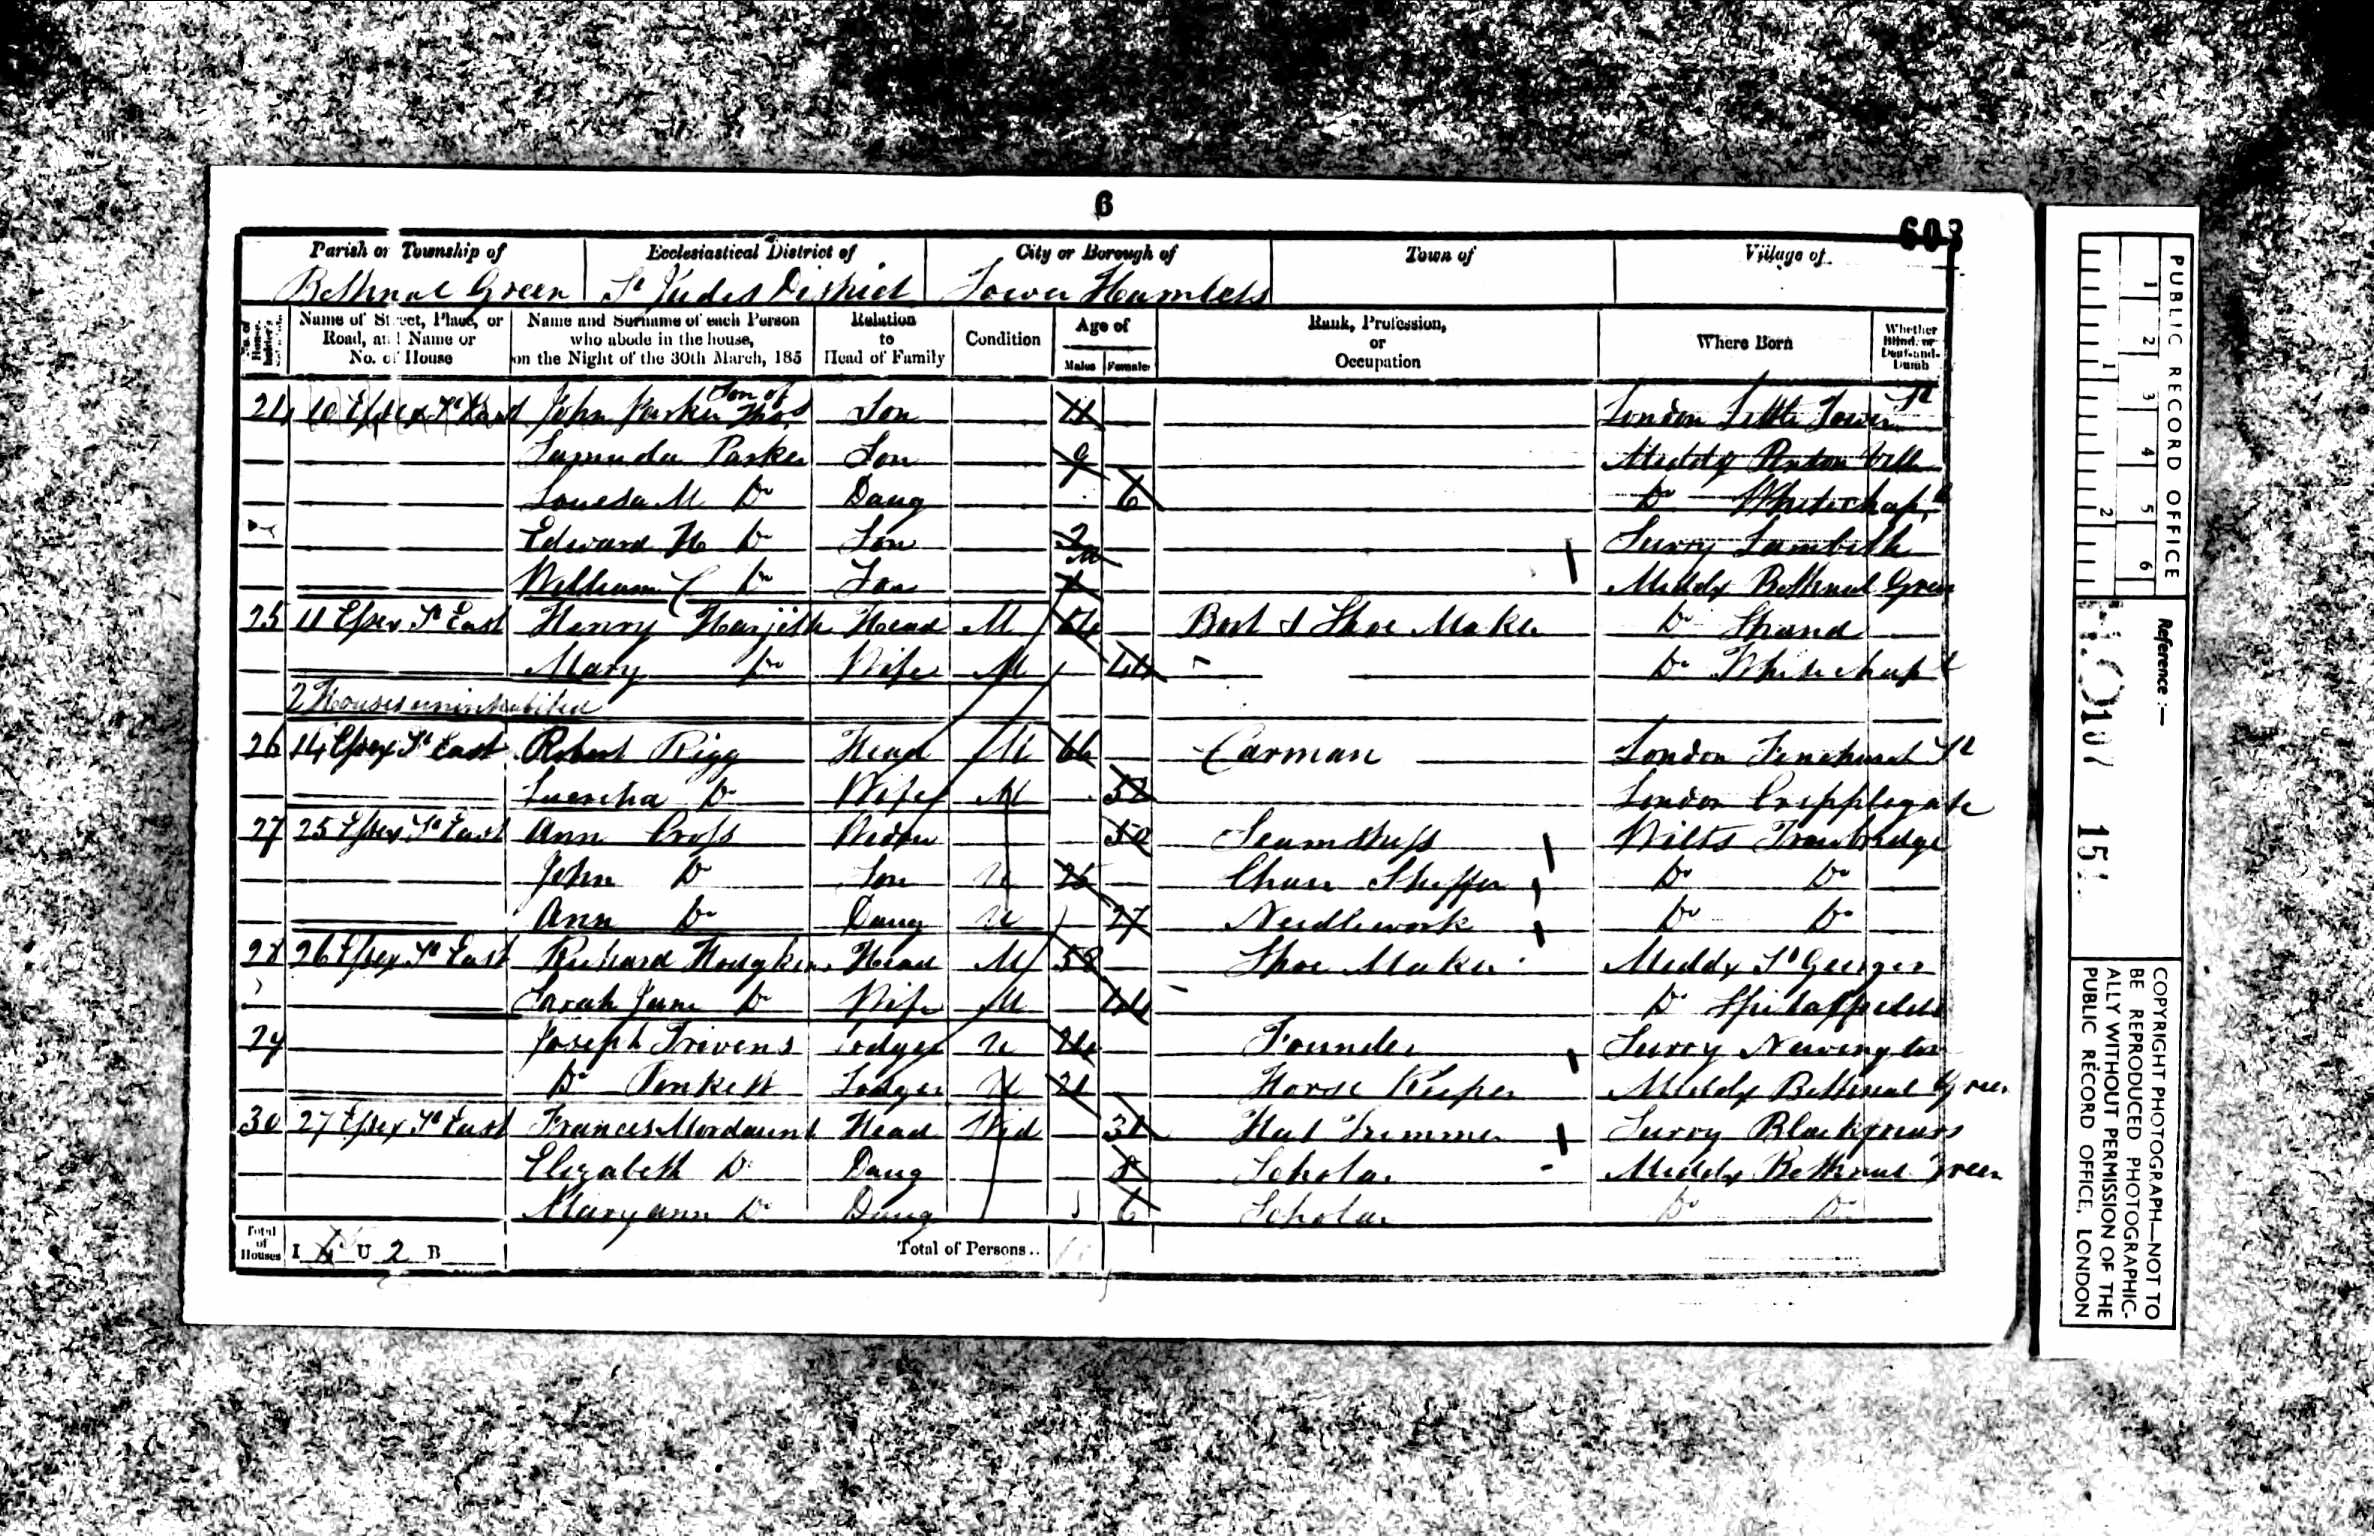 6
603
Parish or Township of Ecclesiastical District of City or Borough of Town of Village of
Bethnal Green St Judes District Tower Hamlets
Name of Street, Place, or Road, and Name or No. of House
Name and Surname of each Person who abode in the house, on the Night of the 30th March, 185
Relation to Head of Family
Condition
Age of
Males Females
Rank, Profession, or Occupation
Where Born
Whether Blind, or Deaf-and-Dumb
24 10 Essex St East John Parker Son of Thos Son 11 London Little Tower St
Parker Son 9 Middx Penton Ville
Louesa M Do Daug 6 Do Whitechapl
Edward H Do Son 2 Surry Lambeth
William C Do Son Middx Bethnal Green
25 11 Essex St East Henry Head M 54 Boot & Shoe Maker Do Strand
Mary Do Wife M 44 Do Whitechapl
2 Houses uninhabited
26 14 Essex St East Robert Rigg Head M 66 Carman London St
Do Wife M London Cripplegate
27 25 Essex St East Ann Cross Widow 50 Seamstress Wilts Trowbridge
John Do Son U 26 Chair Do Do
Ann Do Daug U 27 Needlework Do Do
28 26 Essex St East Richard Hodgkins Head M 58 Shoe Maker Middx St Georges
Sarah Jane Do Wife M 44 Do Spitalfields
29 Joseph Trivens Lodger U 24 Founder Surry Newington
Do Lodger U 21 Horse Keeper Middx Bethnal Green
30 27 Essex St East Frances Mordaunt Head Wid 31 Hat Trimmer Surry Blackfriars
Elizabeth Do Daug 8 Scholar Middx Bethnal Green
Maryann Do Daug 6 Scholar Do Do
Total of Houses I 4 U 2 B Total of Persons..
PUBLIC RECORD OFFICE
1 2 3 4 5 6
1 2
Reference :—
COPYRIGHT PHOTOGRAPH—NOT TO
BE REPRODUCED PHOTOGRAPHIC-
ALLY WITHOUT PERMISSION OF THE
PUBLIC RECORD OFFICE, LONDON